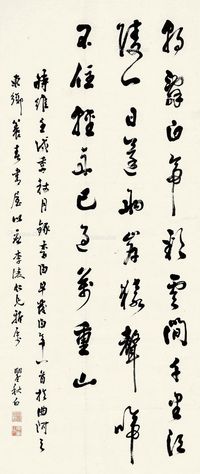 朝辭白帝彩雲間千里江
陵一日還兩岸猿聲啼
不住輕舟已過萬重山
時維壬戌季秋月錄李白早發白帝一首於曲阿之
書屋李陵仁兄雅屬 瞿秋白